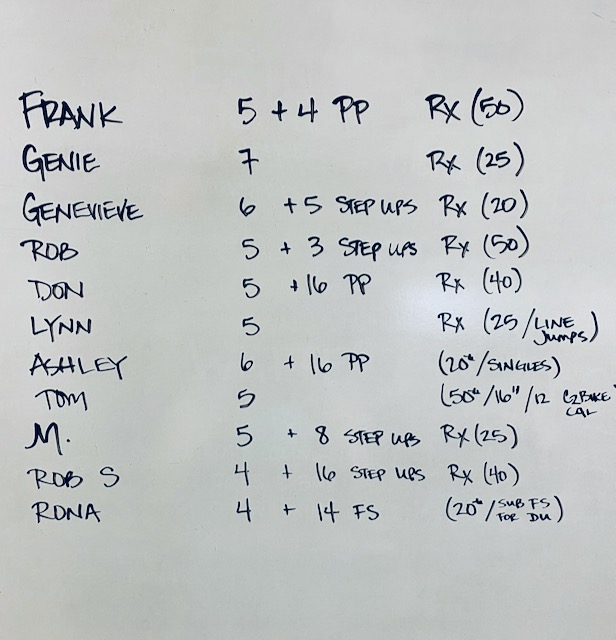 FRANK 5 + 4 PP Rx (50)
GENIE 7 Rx (25)
GENEVIEVE 6 + 5 STEP UPS Rx (20)
ROB 5 + 3 STEP UPS Rx (50)
DON 5 + 16 PP Rx (40)
LYNN 5 Rx (25/LINE JUMPS)
ASHLEY 6 + 16 PP (20#/SINGLES)
TOM 5 (50#/16"/12 C2BIKE CAL
M. 5 + 8 STEP UPS Rx (25)
ROB S 4 + 16 STEP UPS Rx (40)
RONA 4 + 14 FS (20#/SUB FS FOR DU)